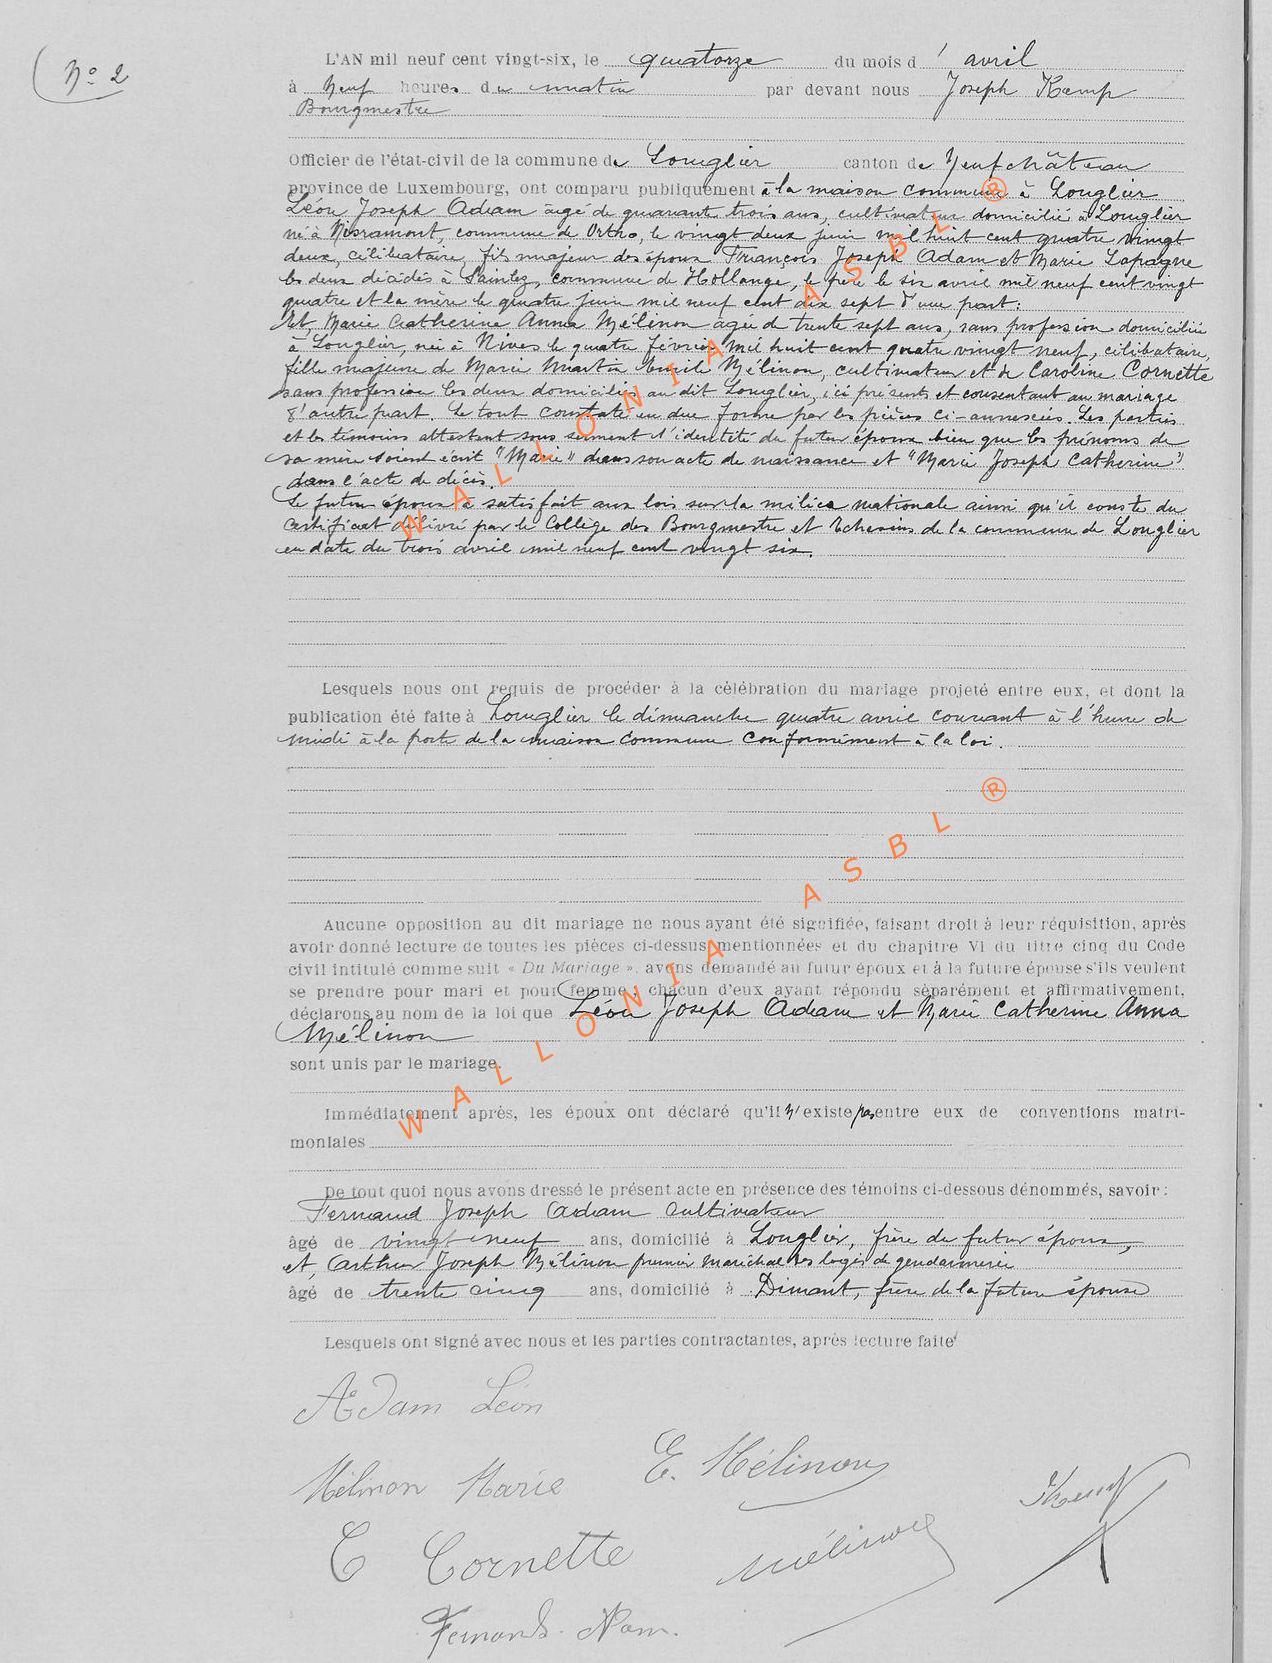 N° 2
L'AN mil neuf cent vingt-six, le quatorze du mois d' avril
à neuf heures du matin par devant nous Joseph Kemp
Bourgmestre
Officier de l'état-civil de la commune de Longlier canton de Neufchâteau
province de Luxembourg, ont comparu publiquement à la maison commune à Longlier
Léon Joseph Adam âgé de quarante trois ans, cultivateur domicilié à Longlier
né à Nisramont, commune de Ortho, le vingt deux juin mil huit cent quatre vingt
deux, célibataire, fils majeur des époux François Joseph Adam et Marie Lapagne
les deux décédés à Sainlez, commune de Hollange, le père le six avril mil neuf cent vingt
quatre et la mère le quatre juin mil neuf cent dix sept d'une part:
Et, Marie Catherine Anna Mélinon agée de trente sept ans, sans profession domiciliée
à Longlier, née à Nives le quatre février mil huit cent quatre vingt neuf, célibataire,
fille majeure de Marie Martin Emile Mélinon, cultivateur et de Caroline Cornette
sans profession les deux domiciliés au dit Longlier, ici présents et consentant au mariage
d'autre part. Le tout constaté en due forme par les pièces ci-annexées. Les parties
et les témoins attestent sous serment l'identité du futur époux bien que les prénoms de
sa mère soient écrit "Marie" dans son acte de naissance et "Marie Joseph Catherine"
dans l'acte de décès.
Le futur époux a satisfait aux lois sur la milice nationale ainsi qu'il conste du
certificat délivré par le Collège des Bourgmestre et Echevins de la commune de Longlier
en date du trois avril mil neuf cent vingt six.
Lesquels nous ont requis de procéder à la célébration du mariage projeté entre eux, et dont la
publication été faite à Longlier le dimanche quatre avril courant à l'heure de
midi à la porte de la maison commune conformément à la loi.
Aucune opposition au dit mariage ne nous ayant été signifiée, faisant droit à leur réquisition, après
avoir donné lecture de toutes les pièces ci-dessus mentionnées et du chapitre VI du titre cinq du Code
civil intitulé comme suit « Du Mariage », avons demandé au futur époux et à la future épouse s'ils veulent
se prendre pour mari et pour femme ; chacun d'eux ayant répondu séparément et affirmativement,
déclarons au nom de la loi que Léon Joseph Adam et Marie Catherine Anna
Mélinon
sont unis par le mariage.
Immédiatement après, les époux ont déclaré qu'il n'existe pas entre eux de conventions matri-
moniales
De tout quoi nous avons dressé le présent acte en présence des témoins ci-dessous dénommés, savoir :
Fernand Joseph Adam cultivateur
âgé de vingt neuf ans, domicilié à Longlier, frère du futur époux,
et, Arthur Joseph Mélinon premier maréchal des logis de gendarmerie
âgé de trente cinq ans, domicilié à Dinant, frère de la future épouse
Lesquels ont signé avec nous et les parties contractantes, après lecture faite
Adam Léon
Mélinon Marie E. Mélinon JKemp
C Cornette Mélinon
Fernand Adam.
WALLONIA ASBL ®
WALLONIA ASBL ®